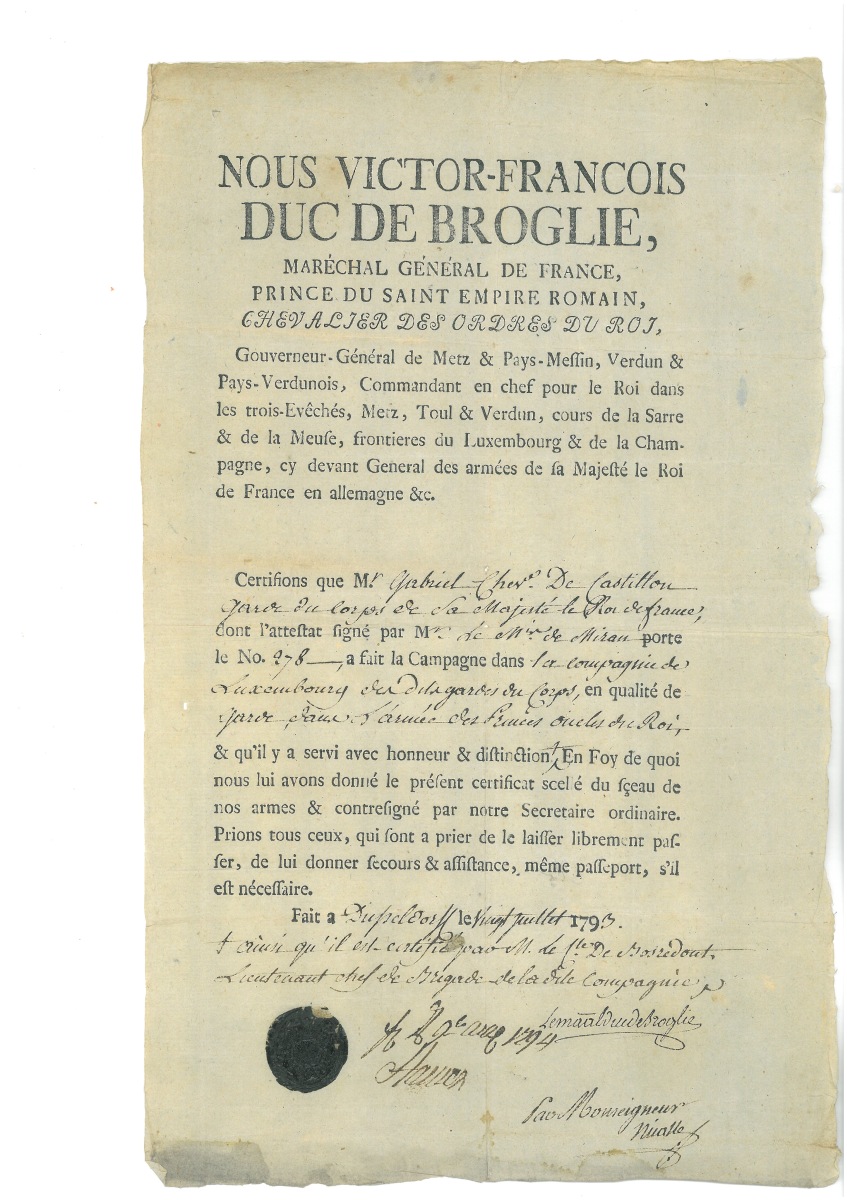 NOUS VICTOR-FRANCOIS
DUC DE BROGLIE,
MARÉCHAL GÉNÉRAL DE FRANCE,
PRINCE DU SAINT EMPIRE ROMAIN,
CHEVALIER DES ORDRES DU ROI,
Gouverneur-Général de Metz & Pays-Meſſin, Verdun &
Pays-Verdunois, Commandant en chef pour le Roi dans
les trois-Evêchés, Metz, Toul & Verdun, cours de la Sarre
& de la Meuſe, frontieres du Luxembourg & de la Cham-
pagne, cy devant General des armées de ſa Majeſté le Roi
de France en allemagne &c.
Certifions que Mr Gabriel Chev. De Castillon
Garde du corps de Sa Majesté le Roi de france,
dont l'atteſtat ſigné par Mr. Le Mis de Miran porte
le No. 278, a fait la Campagne dans la compagnie de
Luxembourg des dits gardes du Corps, en qualité de
Garde, dans L'armée des Princes oncles du Roi,
& qu'il y a ſervi avec honneur & diſtinction † En Foy de quoi
nous lui avons donné le préſent certificat ſcellé du ſçeau de
nos armes & contreſigné par notre Secretaire ordinaire.
Prions tous ceux, qui ſont a prier de le laiſſer librement paſ-
ſer, de lui donner ſecours & aſſiſtance, même paſſeport, s'il
eſt néceſſaire.
Fait a Dusseldorff le Vingt juillet 1793.
† ainsi qu'il est certifié par M. le Cte De Bosredont,
Lieutenant chef de Brigade de la dite Compagnie
Le mâal duc de Broglie
1794
Par Monseigneur